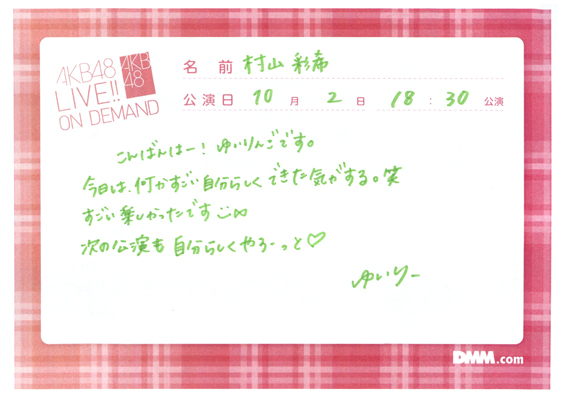 AKB48
LIVE!!
ON DEMAND
AKB
48
名 前 村山 彩希
公演日 10 月 2 日 18 : 30 公演
こんばんはー! ゆいりんごです。
今日は、何かすごい自分らしくできた気がする。笑
すごい楽しかったです
次の公演も自分らしくやろーっと♡
ゆいりー
DMM.com